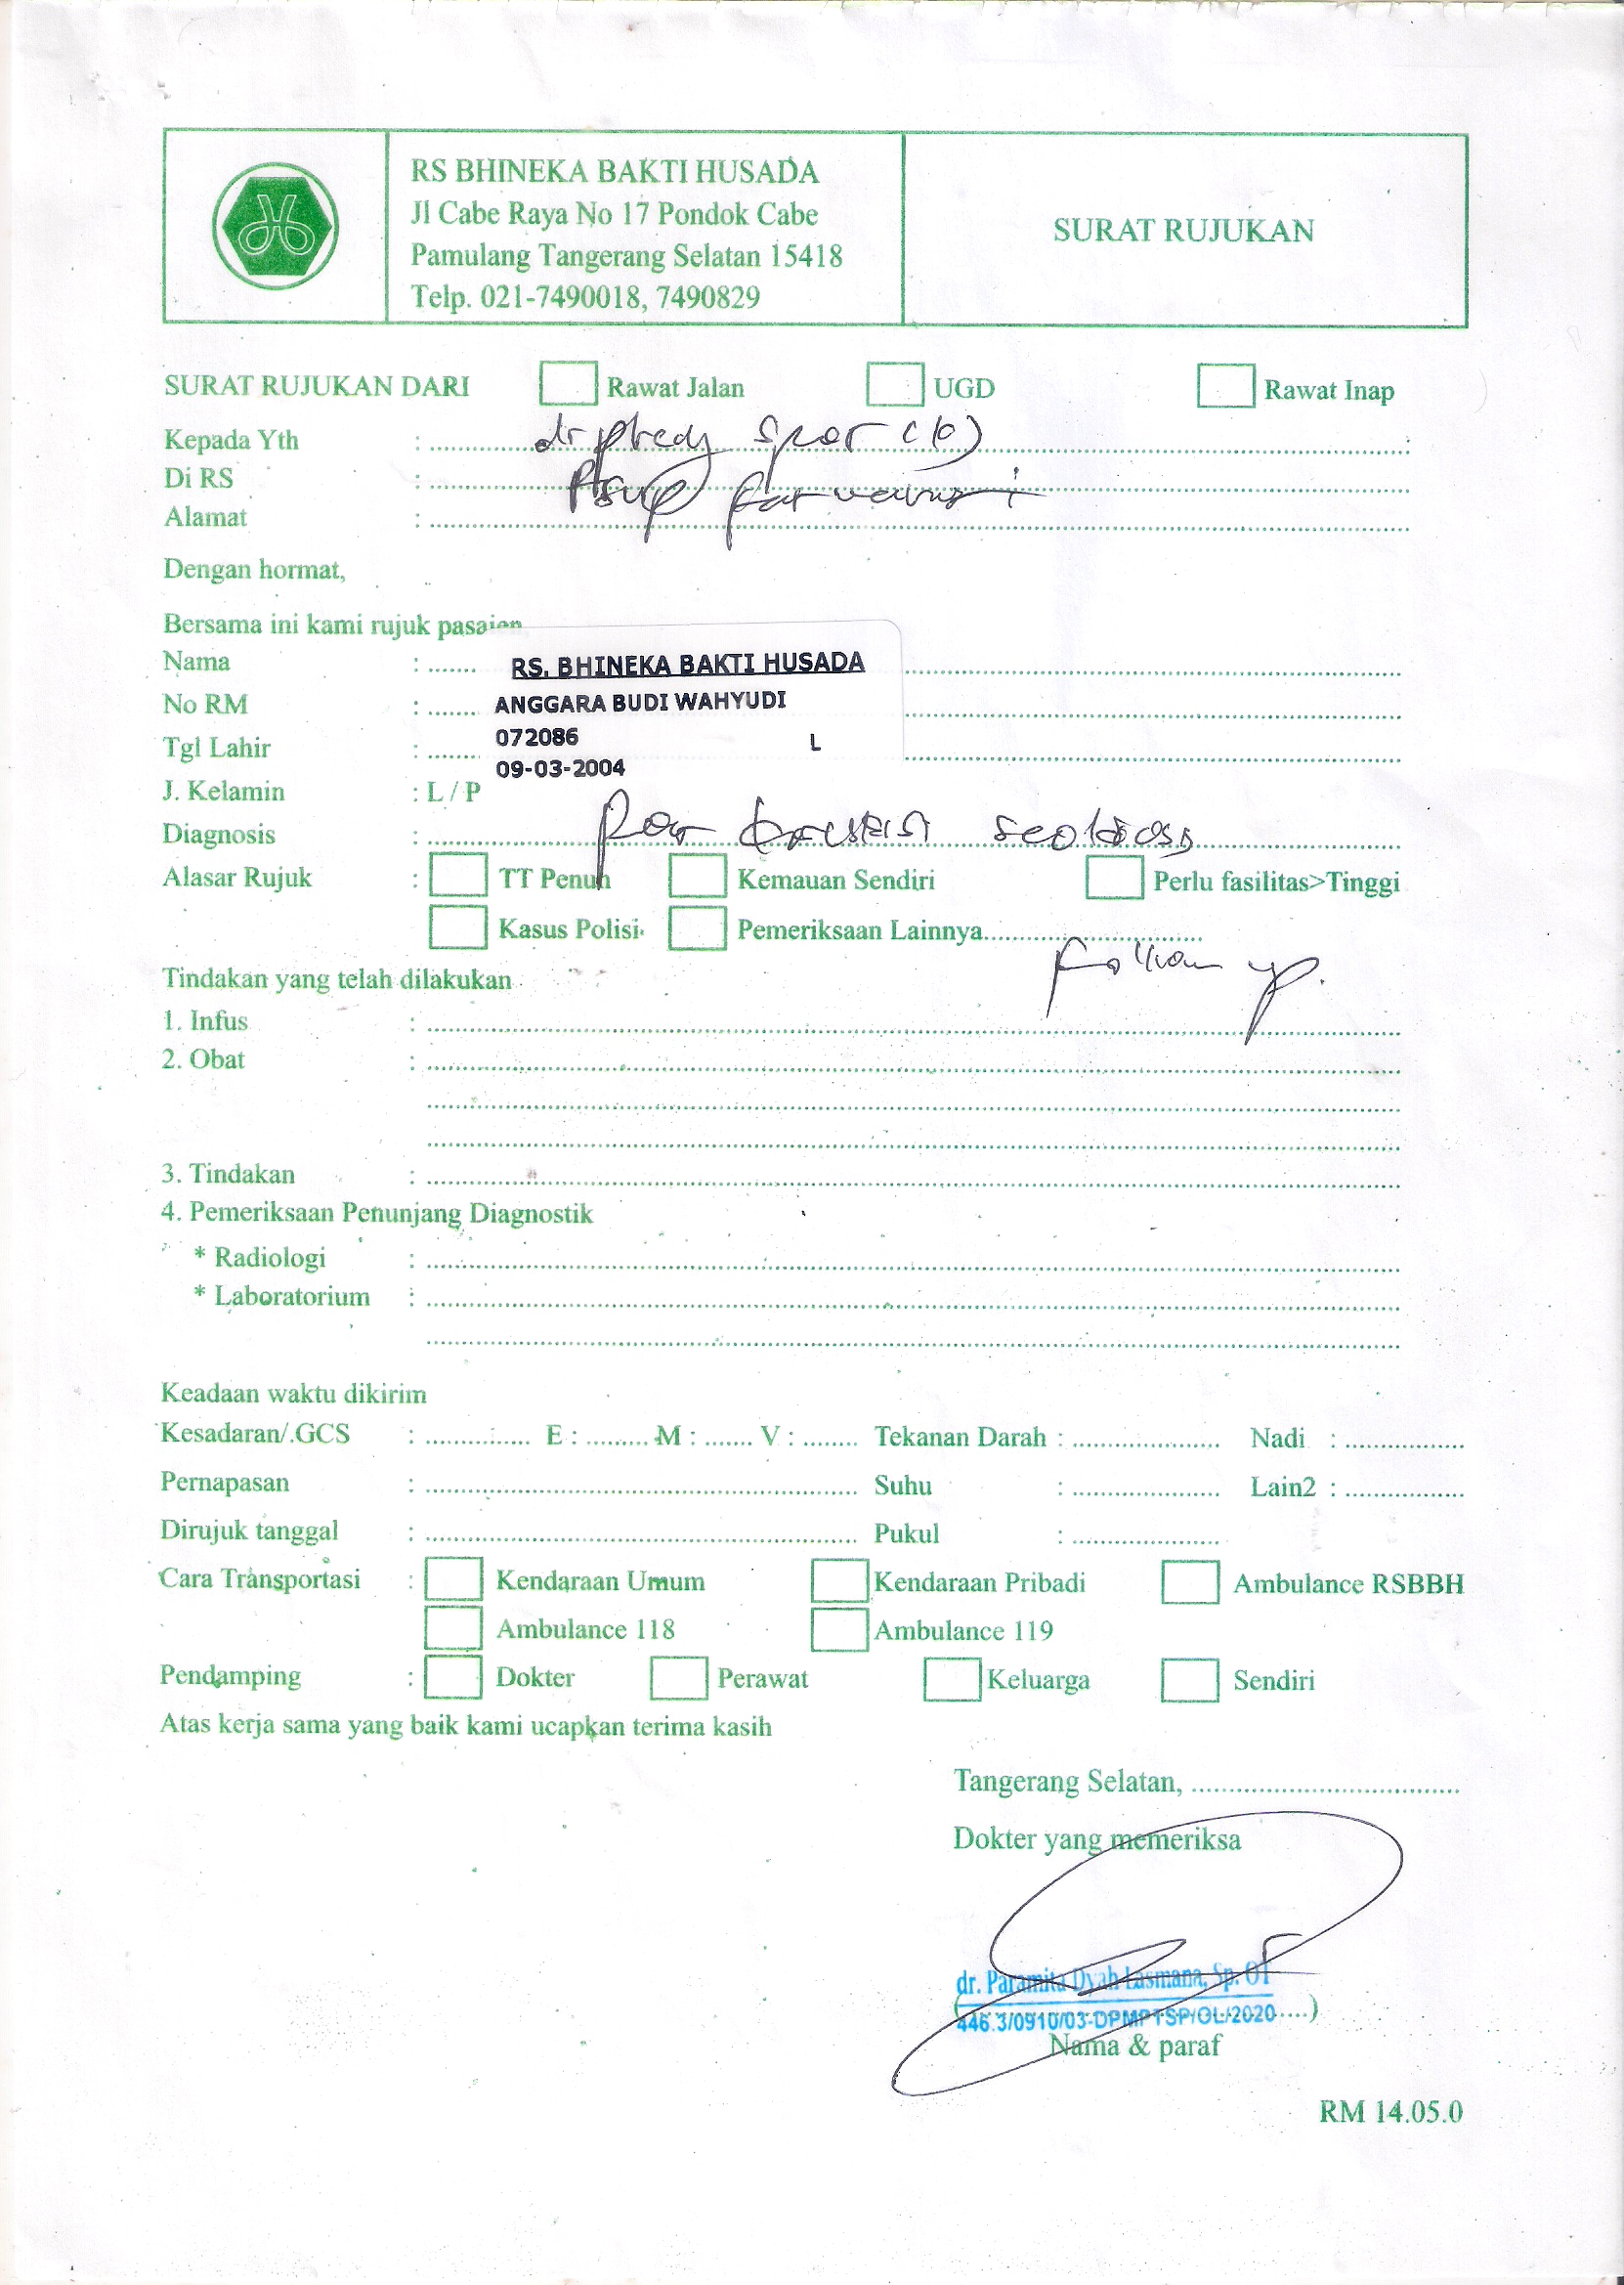 RS BHINEKA BAKTI HUSADA
Jl Cabe Raya No 17 Pondok Cabe
Pamulang Tangerang Selatan 15418
Telp. 021-7490018, 7490829
SURAT RUJUKAN
SURAT RUJUKAN DARI Rawat Jalan UGD Rawat Inap
Kepada Yth : dr
Di RS : Rsup fatmawati
Alamat :
Dengan hormat,
Bersama ini kami rujuk pasaien
RS. BHINEKA BAKTI HUSADA
Nama :
ANGGARA BUDI WAHYUDI
No RM :
072086 L
Tgl Lahir :
09-03-2004
J. Kelamin : L / P
Diagnosis :
Alasar Rujuk : TT Penuh Kemauan Sendiri Perlu fasilitas>Tinggi
Kasus Polisi Pemeriksaan Lainnya
Follow up.
Tindakan yang telah dilakukan
1. Infus :
2. Obat :
3. Tindakan :
4. Pemeriksaan Penunjang Diagnostik
* Radiologi :
* Laboratorium :
Keadaan waktu dikirim
Kesadaran/.GCS : E : M : V : Tekanan Darah : Nadi :
Pernapasan : Suhu : Lain2 :
Dirujuk tanggal : Pukul :
Cara Transportasi : Kendaraan Umum Kendaraan Pribadi Ambulance RSBBH
Ambulance 118 Ambulance 119
Pendamping : Dokter Perawat Keluarga Sendiri
Atas kerja sama yang baik kami ucapkan terima kasih
Tangerang Selatan,
Dokter yang memeriksa
dr. Paramita Dyah Lasmana, Sp. OT
446.3/0910/03-DPMPTSP/OL/2020
Nama & paraf
RM 14.05.0